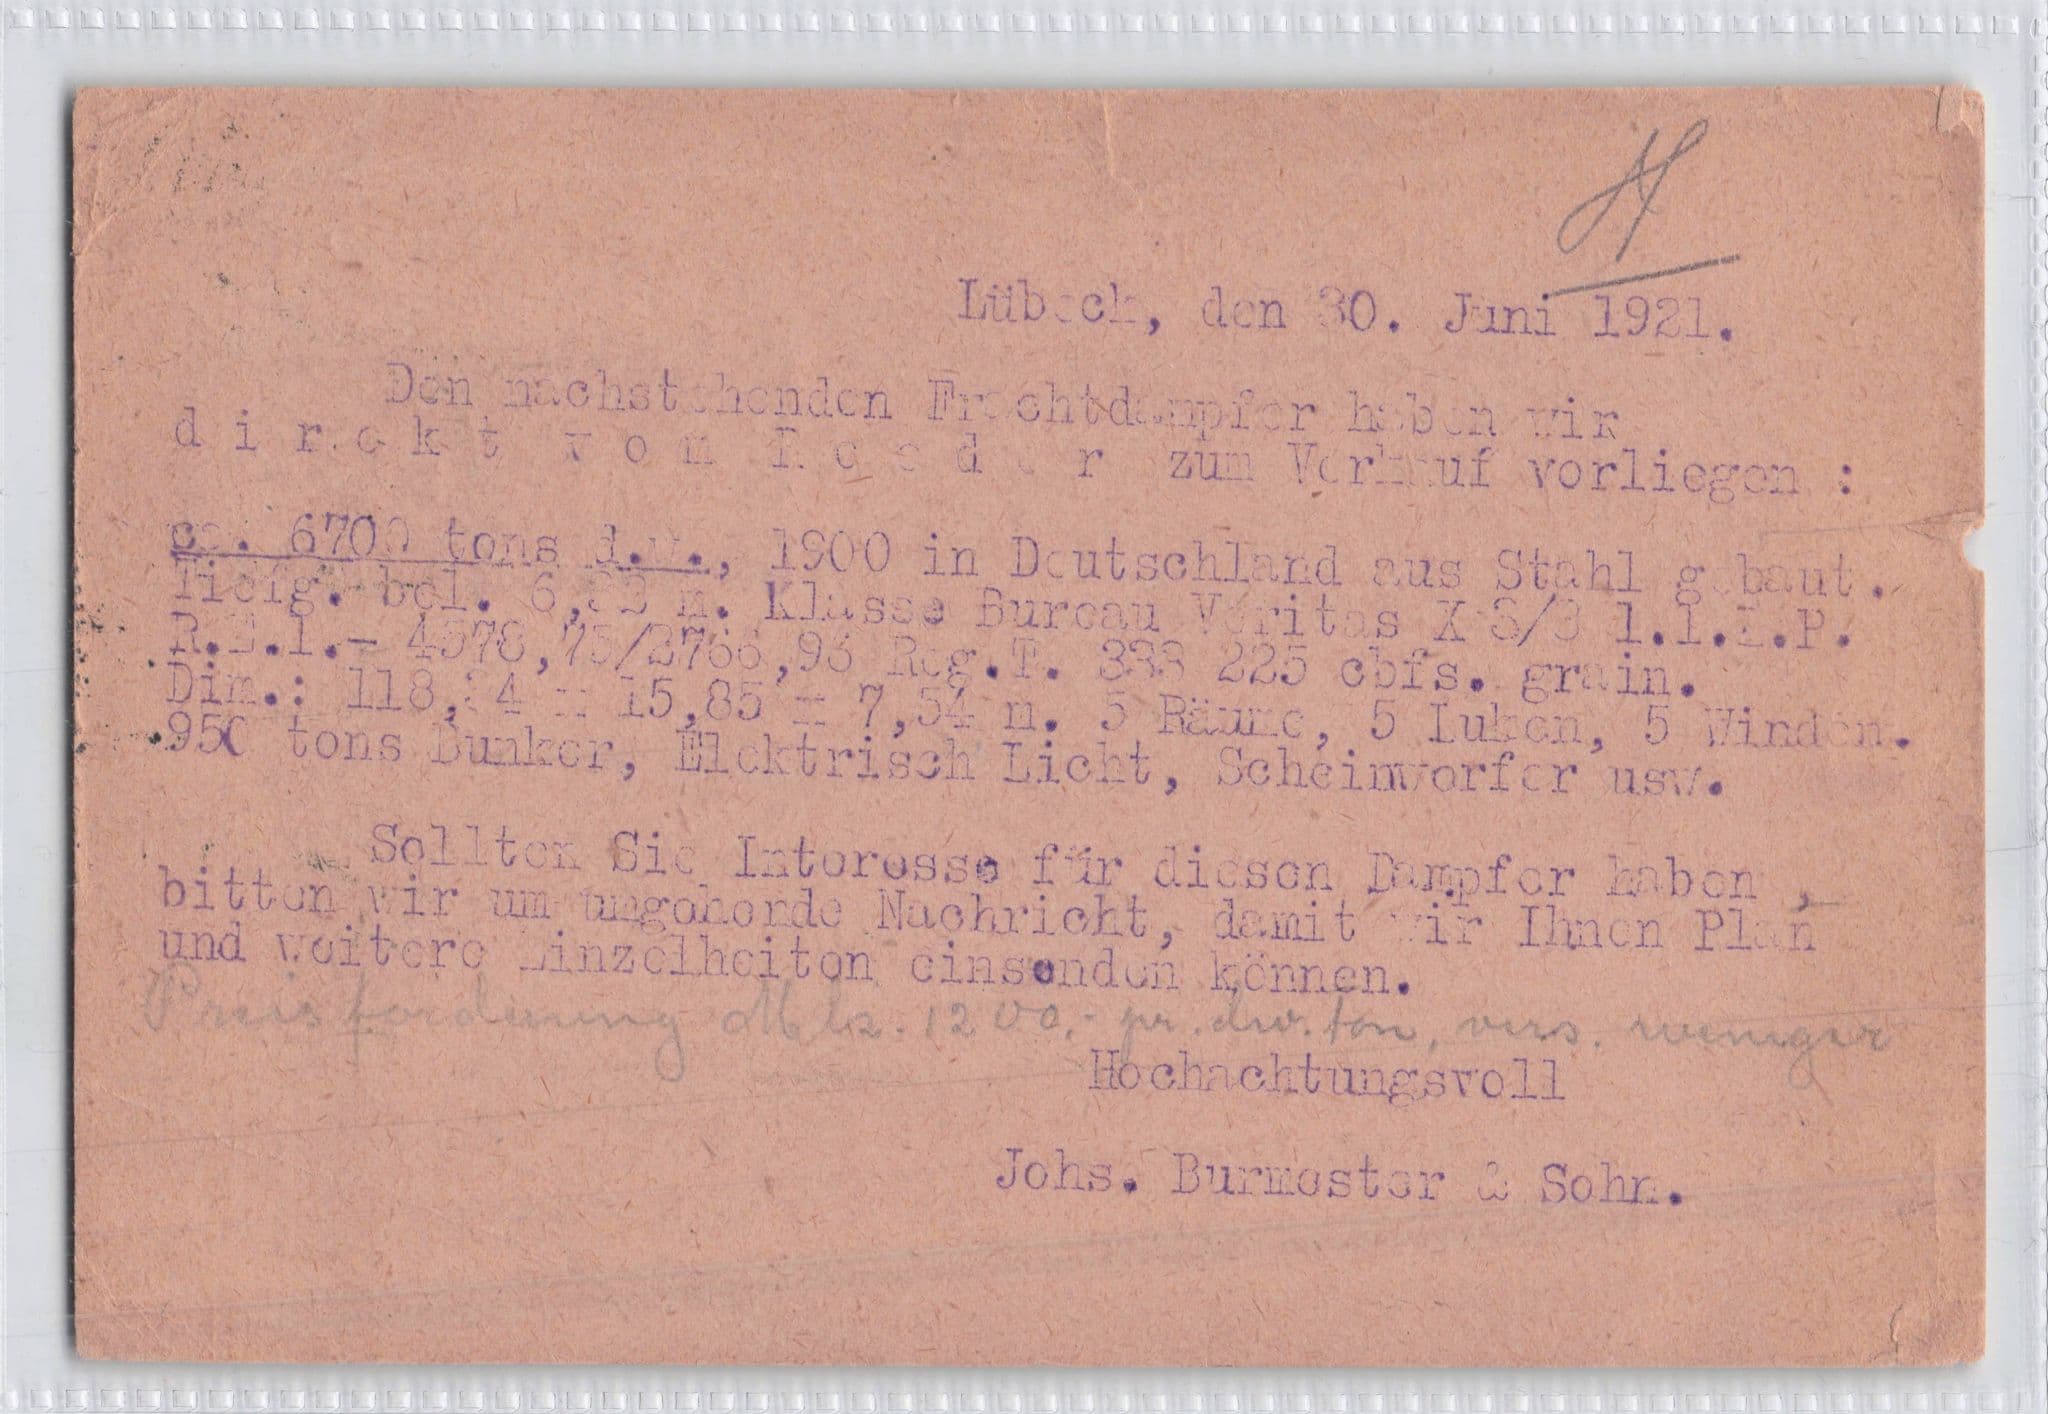 Lübeck, den 30. Juni 1921.
Den nachstehenden Frachtdampfer haben wir
d i r e k t v o m R e e d e r zum Verkauf vorliegen :
ca. 6700 tons d.w., 1900 in Deutschland aus Stahl gebaut.
Tiefg. bel. m. Klasse Bureau Veritas
Reg.T. 225 cbfs. grain.
Dim.: x 15,85 x 7,54 m. 5 Räume, 5 Luken, 5 Winden.
950 tons Bunker, Elektrisch Licht, Scheinwerfer usw.
Sollten Sie Interesse für diesen Dampfer haben ,
bitten wir um umgehende Nachricht, damit wir Ihnen Plan
und weitere Einzelheiten einsenden können.
Preisforderung Mk. 1200.- pr. dw. ton, weniger
Hochachtungsvoll
Johs. Burmester & Sohn.